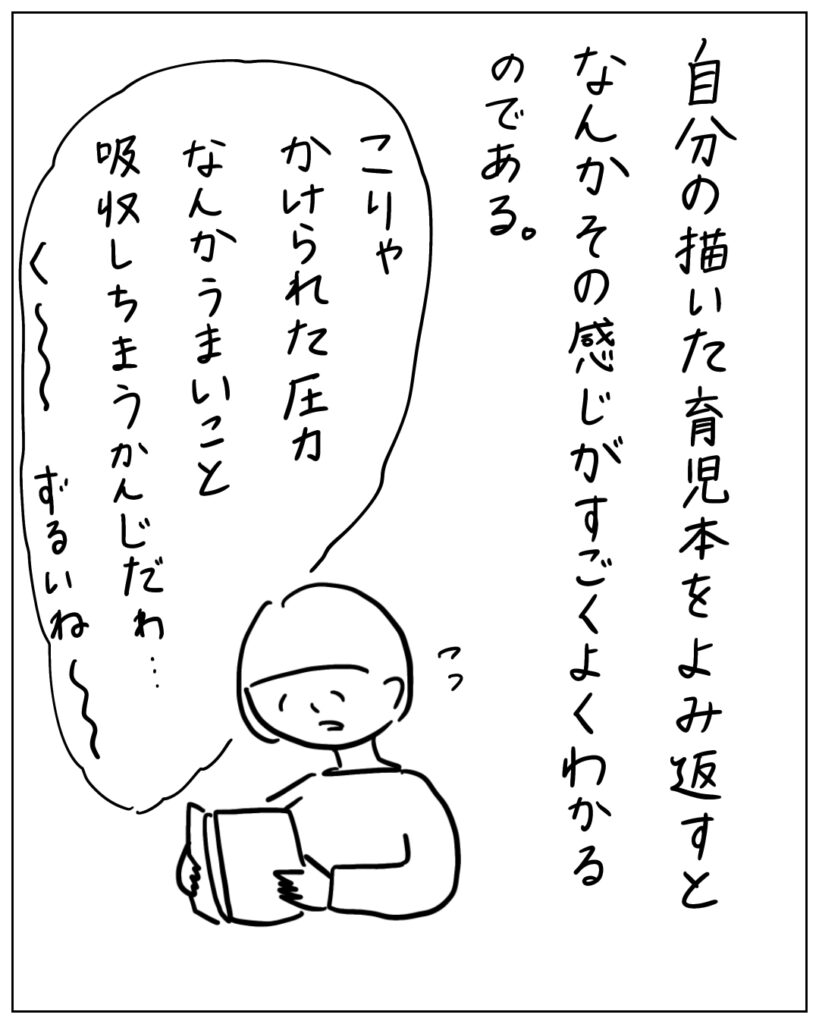 自分の描いた育児本をよみ返すと
なんかその感じがすごくよくわかる
のである。
こりゃ
かけられた圧力
なんかうまいこと
吸収しちまうかんじだわ…
く〜〜 ずるいね〜〜